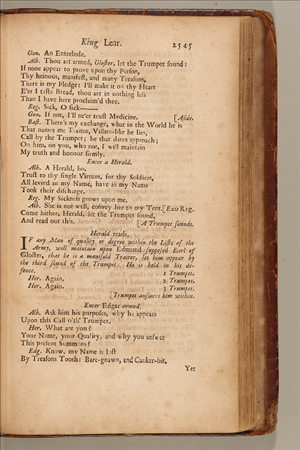 King Lear. 2545
Gon. An Enterlude.
Alb. Thou art armed, Gloster, let the Trumpet sound:
If none appear to prove upon thy Person,
Thy heinous, manifest, and many Treasons,
There is my Pledge: I'll make it on thy Heart
E'er I taste Bread, thou art in nothing less
Than I have here proclaim'd thee.
Reg. Sick, O sick——
Gon. If not, I'll ne'er trust Medicine. [Aside.
Bast. There's my exchange, what in the World he is
That names me Traitor, Villain-like he lies,
Call by the Trumpet; he that dares approach;
On him, on you, who not, I will maintain
My truth and honour firmly.
Enter a Herald.
Alb. A Herald, ho.
Trust to thy single Virtues, for thy Soldiers,
All levied in my Name, have in my Name
Took their discharge.
Reg. My Sickness grows upon me.
Alb. She is not well, convey her to my Tent. [Exit Reg.
Come hither, Herald, let the Trumpet sound,
And read out this. [A Trumpet sounds.
Herald reads.
IF any Man of quality or degree within the Lists of the
Army, will maintain upon Edmund supposed Earl of
Gloster, that he is a manifold Traitor, let him appear by
the third sound of the Trumpet: He is bold in his de-
fence. 1 Trumpet.
Her. Again. 2 Trumpet.
Her. Again. 3 Trumpet.
[Trumpet answers him within.
Enter Edgar armed.
Alb. Ask him his purposes, why he appears
Upon this Call o'th' Trumpet.
Her. What are you?
Your Name, your Quality, and why you answer
This present Summons?
Edg. Know, my Name is lost
By Treasons Tooth: Bare-gnawn, and Canker-bit,
Yet